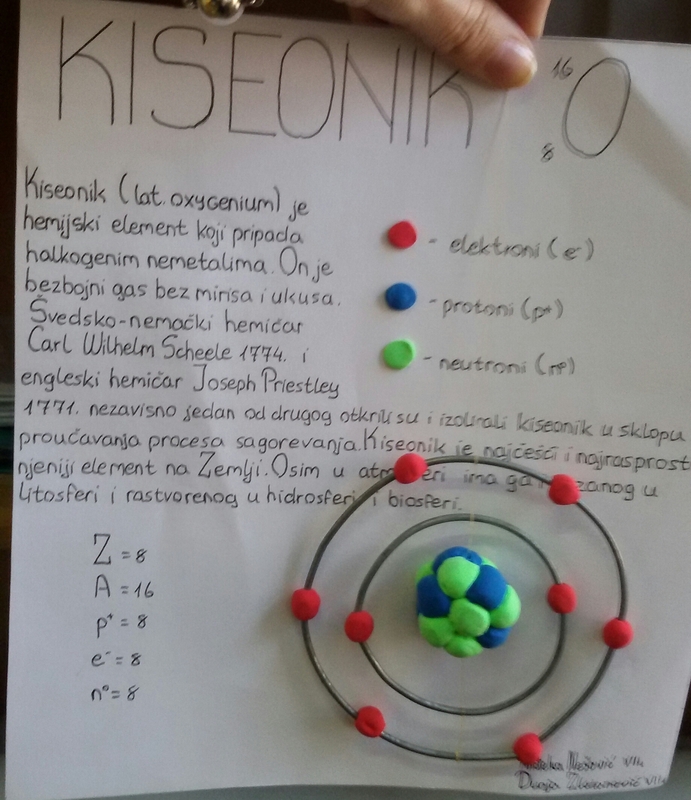 KISEONIK
16
O
8
Kiseonik (lat. oxygenium) je
hemijski element koji pripada
halkogenim nemetalima. On je
bezbojni gas bez mirisa i ukusa.
Švedsko-nemački hemičar
Carl Wilhelm Scheele 1774. i
engleski hemičar Joseph Priestley
1771. nezavisno jedan od drugog otkrili su i izolirali kiseonik u sklopu
proučavanja procesa sagorevanja. Kiseonik je najčešći i najrasprost
njeniji element na Zemlji. Osim u ima ga u
litosferi i rastvorenog u hidrosferi i biosferi.
- elektroni (e⁻)
- protoni (p⁺)
- neutroni (n⁰)
Z = 8
A = 16
p⁺ = 8
e⁻ = 8
n⁰ = 8